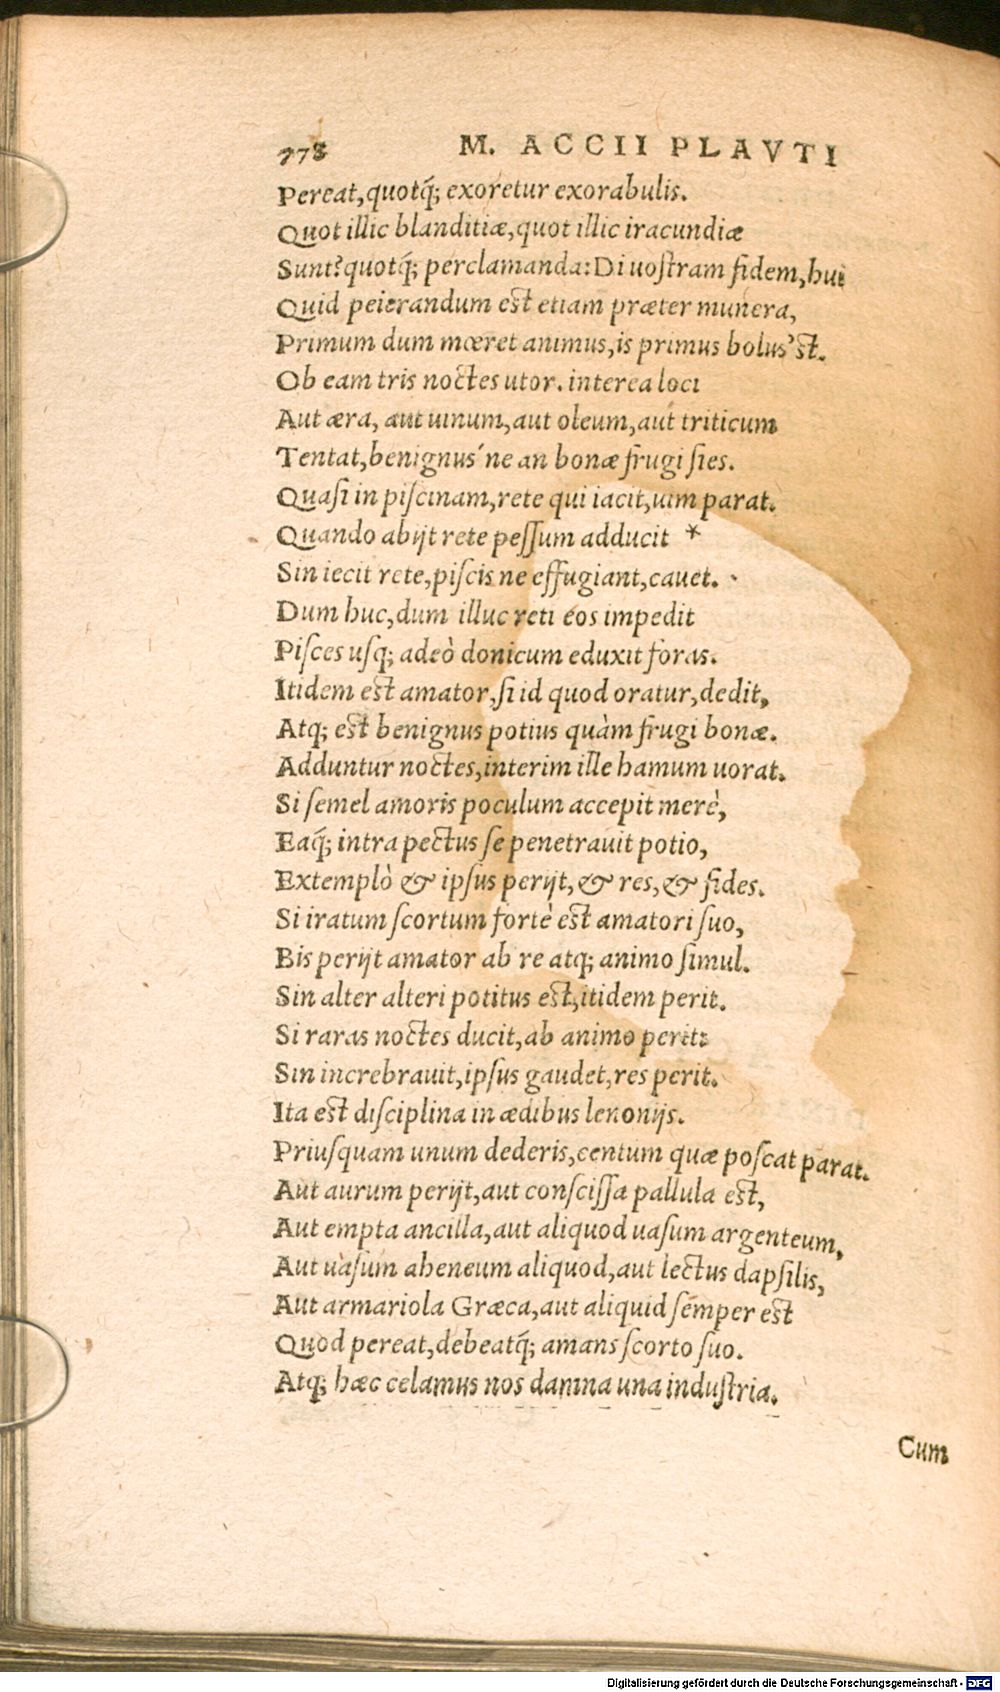 778 M. ACCII PLAVTI
Pereat,quotq́; exoretur exorabulis.
Quot illic blanditiæ,quot illic iracundiæ
Sunt?quotq́; perclamanda:Di uoſtram fidem,hui
Quid peierandum est etiam præter munera,
Primum dum mœret animus,is primus bolus'st.
Ob eam tris noctes utor. interea loci
Aut æra, aut uinum,aut oleum,aut triticum
Tentat,benignus´ne an bonæ frugi ſies.
Quaſi in piſcinam,rete qui iacit,uim parat.
Quando abijt rete peſſum adducit *
Sin iecit rete,piſcis ne effugiant,cauet.
Dum huc,dum illuc reti eos impedit
Piſces uſq; adeò donicum eduxit foras.
Itidem est amator,ſi id quod oratur,dedit,
Atq; est benignus potius quàm frugi bonæ.
Adduntur noctes,interim ille hamum uorat.
Si ſemel amoris poculum accepit merè,
Eaq́; intra pectus ſe penetrauit potio,
Extemplò & ipſus perijt,& res,& fides.
Si iratum ſcortum fortè est amatori ſuo,
Bis perijt amator ab re atq; animo ſimul.
Sin alter alteri potitus est,itidem perit.
Si raras noctes ducit,ab animo perit:
Sin increbrauit,ipſus gaudet,res perit.
Ita est diſciplina in ædibus lenonijs.
Priuſquam unum dederis,centum quæ poſcat parat.
Aut aurum perijt,aut conſciſſa pallula est,
Aut empta ancilla,aut aliquod uaſum argenteum,
Aut uàſum aheneum aliquod,aut lectus dapſilis,
Aut armariola Græca,aut aliquid ſemper est
Quod pereat,debeatq́; amans ſcorto ſuo.
Atq; hæc celamus nos damna una induſtria.
Cum
Digitalisierung gefördert durch die Deutsche Forschungsgemeinschaft - DFG